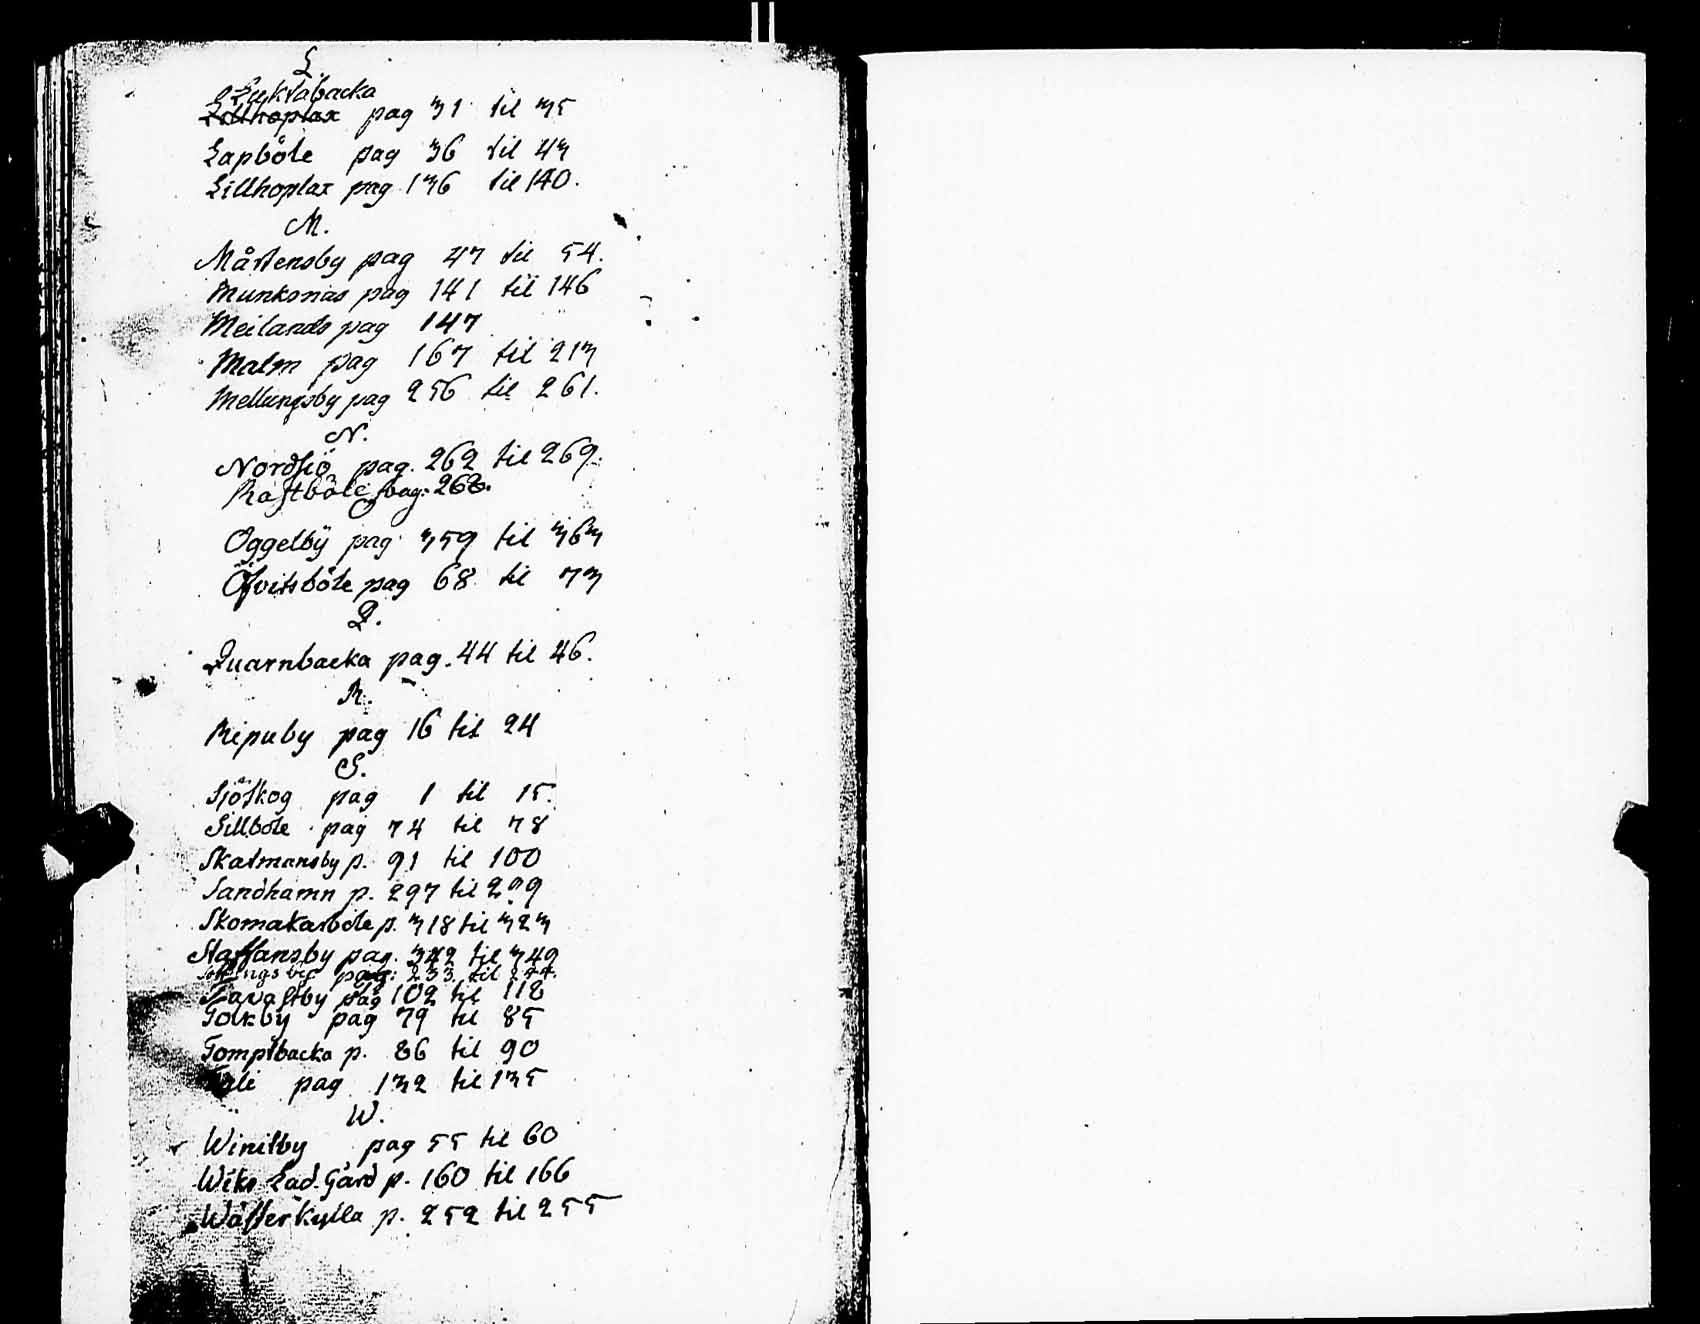 L.
Luktabacka
Lillhoplax pag 31 til 35
Lapböle pag 36 til 43
Lillhoplax pag 136 til 140.
M.
Mårtensby pag 47 til 54.
Munksnäs pag 141 til 146
Meilands pag 147
Malm pag 167 til 213
Mellungsby pag 256 til 261.
N.
Nordsiö pag. 262 til 269.
Rastböle pag: 268.
O
Oggelby pag 359 til 363
Öfvitsböle pag 68 til 73
Q.
Quarnbacka pag. 44 til 46.
R.
Ripuby pag 16 til 24
S.
Sjöskog pag 1 til 15.
Sillböle pag 74 til 78
Skatmansby p. 91 til 100
Sandhamn p. 297 til 299
Skomakarböle p. 318 til 323
Staffansby pag. 342 til 349
pag: 233. til 244.
Tavastby pag 102 til 118
Tolkby pag 79 til 85
Tomptbacka p. 86 til 90
pag 132 til 135
W.
Winitby pag 55 til 60
Wiks Lad. Gård p. 160 til 166
Wästerkylla p. 252 til 255